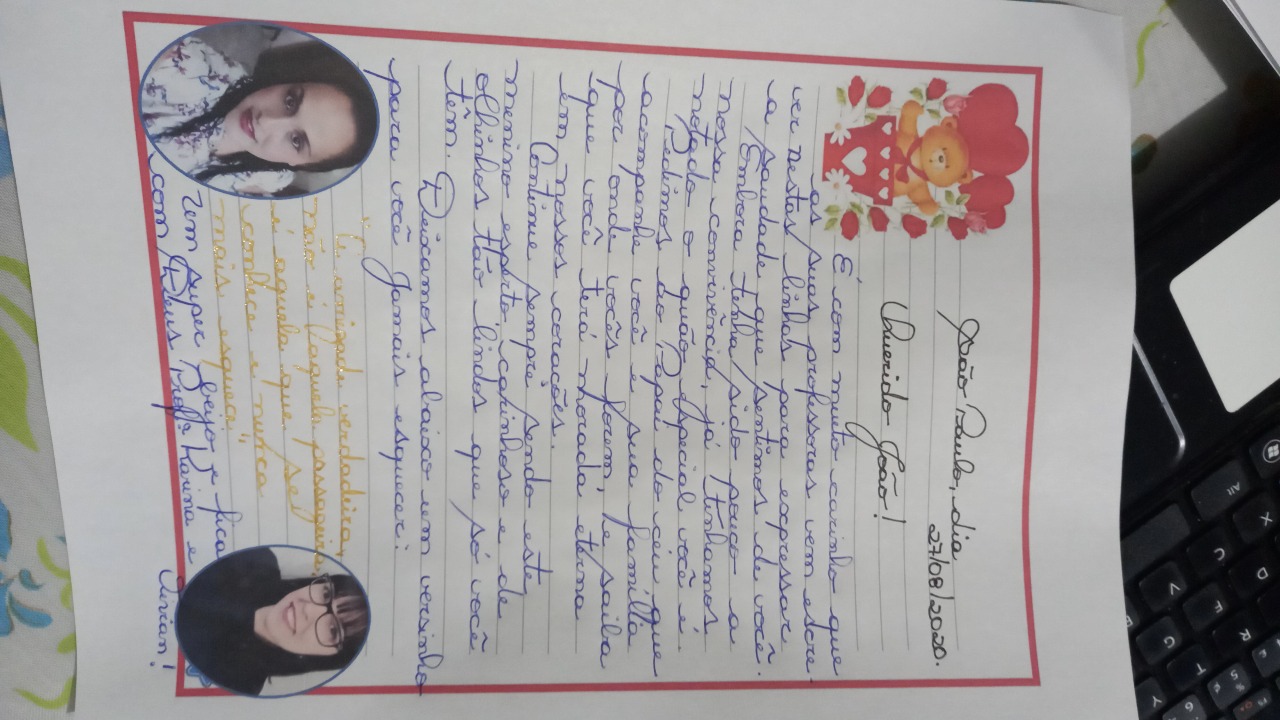 São Paulo, dia
27/08/2020.
Querido João!
É com muito carinho que
as suas professoras vem escre-
ver nestas linhas para expressar
a saudade que sentimos de você.
Embora tenha sido pouco a
nossa convivência, já tinhamos
notado o quão especial você é.
Pedimos ao Papai do céu que
acompanhe você e sua família
por onde vocês forem, e saiba
que você terá morada eterna
em nossos corações.
Continue sempre sendo este
menino esperto, carinhoso e de
olhinhos tão lindos que só você
têm.
Deixamos abaixo um versinho
para você jamais esquecer:
"A amizade verdadeira,
não é daquela passageira,
é aquela que se
conhece e nunca
mais esquece"
Um super beijo e fica
com Deus Profª Karina e
Vivian!